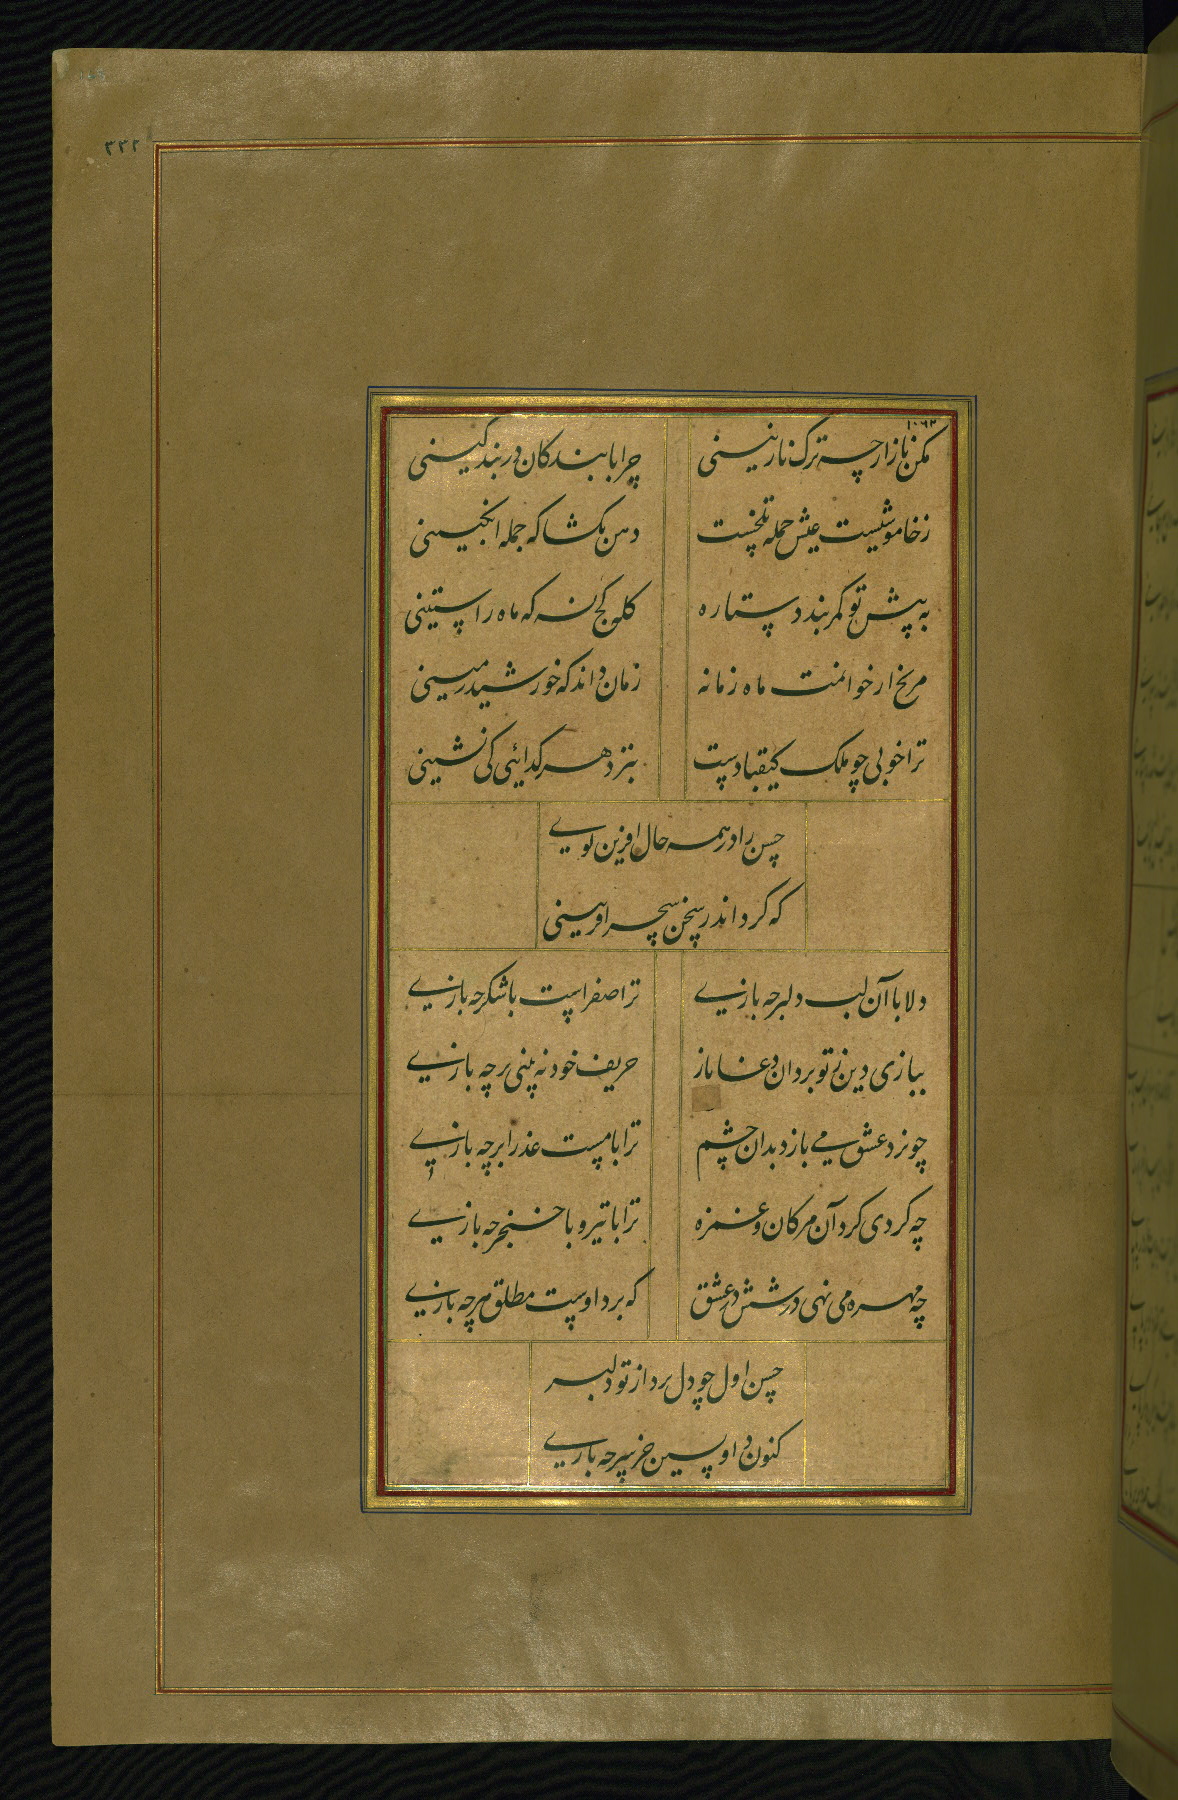 ۳۲۲
۱۰۶۳
مکن ناز ارچه ترک نازنینی چرا با بندکان در بند کینی
ز خاموشیست عیش جمله تلخست دهن بکشا که جمله انکبینی
به پیش تو کمر بندد ستاره کله کج نه که ماه راستینی
مرنج ار خوانمت ماه زمانه زمان داند که خورشید زمینی
ترا خوبی چو ملک کیقبادست بنزد هر کدائی کی نشینی
حسن را در همه حال افرین کوی
که کرد اندر سخن سحر افرینی
دلا با آن لب دلبر چه بازی ترا صفراست با شکر چه بازی
ببازی دین ز تو برد ان دغا باز حریف خود نه بینی بر چه بازی
چو نرد عشق می بازد بدان چشم ترا با مست عذرا بر چه بازی
چه کردی کرد آن مژکان و غمزه ترا با تیر و با خنجر چه بازی
چه مهره می نهی در ششدر عشق که برد اوست مطلق هر چه بازی
حسن اول چو دل برد از تو دلبر
کنون داو پسین خر سر چه بازی